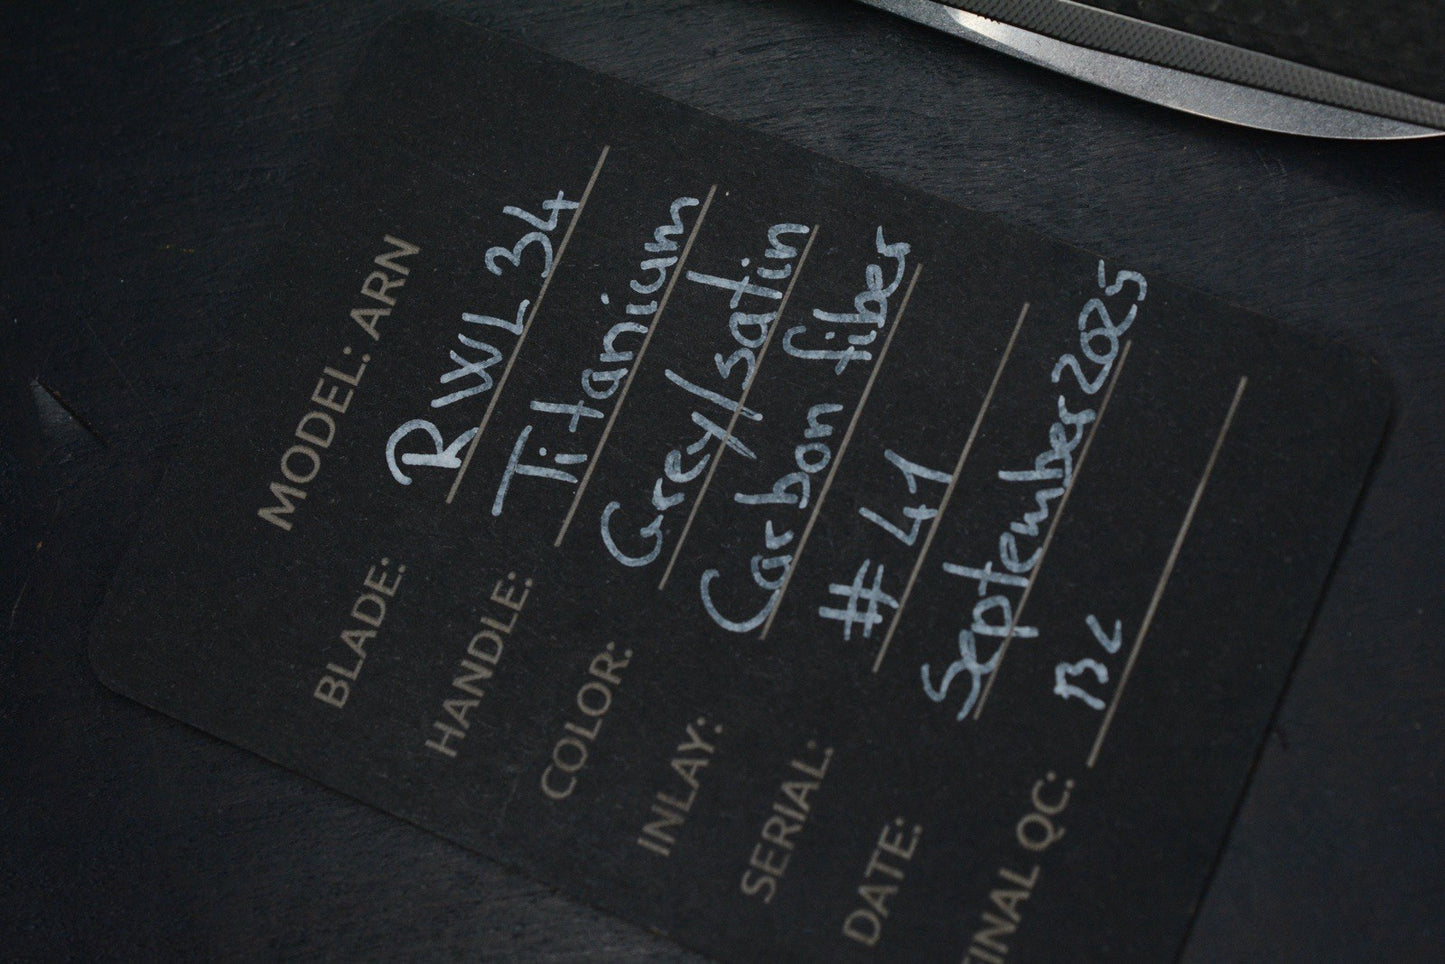 MODEL: ARN
BLADE: RWL 34
HANDLE: Titanium
COLOR: Grey/satin
INLAY: Carbon fiber
SERIAL: #41
DATE: September 2025
INAL QC: